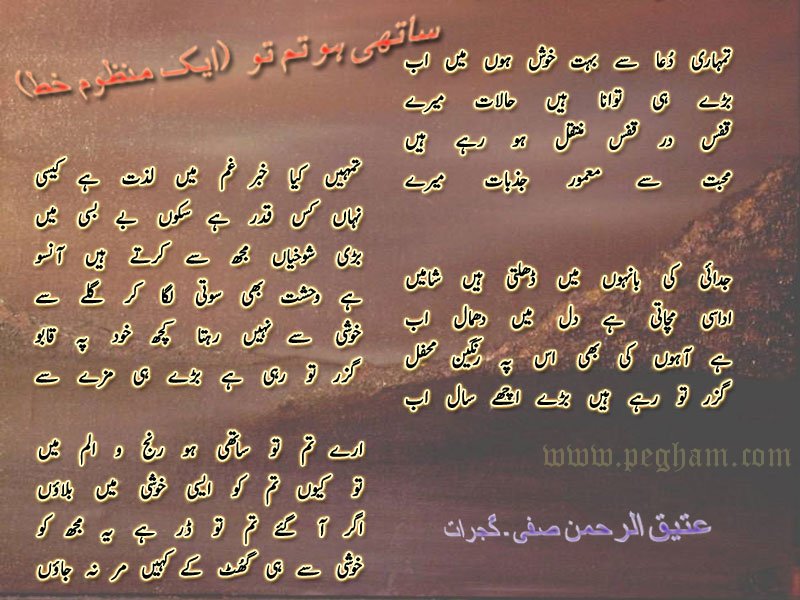 ساتھی ہو تم تو (ایک منظوم خط)
تمہاری دُعا سے بہت خوش ہوں میں اب
بڑے ہی توانا ہیں حالات میرے
قفس در قفس منتقل ہو رہے ہیں
محبت سے معمور جذبات میرے
جدائی کی بانہوں میں ڈھلتی ہیں شامیں
اداسی مچاتی ہے دل میں دھمال اب
ہے آہوں کی بھی اس پہ رنگین محفل
گزر تو رہے ہیں بڑے اچھے سال اب
تمہیں کیا خبر غم میں لذت ہے کیسی
نہاں کس قدر ہے سکوں بے بسی میں
بڑی شوخیاں مجھ سے کرتے ہیں آنسو
ہے وحشت بھی سوتی لگا کر گلے سے
خوشی سے نہیں رہتا کچھ خود پہ قابو
گزر تو رہی ہے بڑے ہی مزے سے
ارے تم تو ساتھی ہو رنج و الم میں
تو کیوں تم کو ایسی خوشی میں بلاؤں
اگر آ گئے تم تو ڈر ہے یہ مجھ کو
خوشی سے ہی گھٹ کے کہیں مر نہ جاؤں
www.pegham.com
عتیق الرحمن صفی۔گجرات